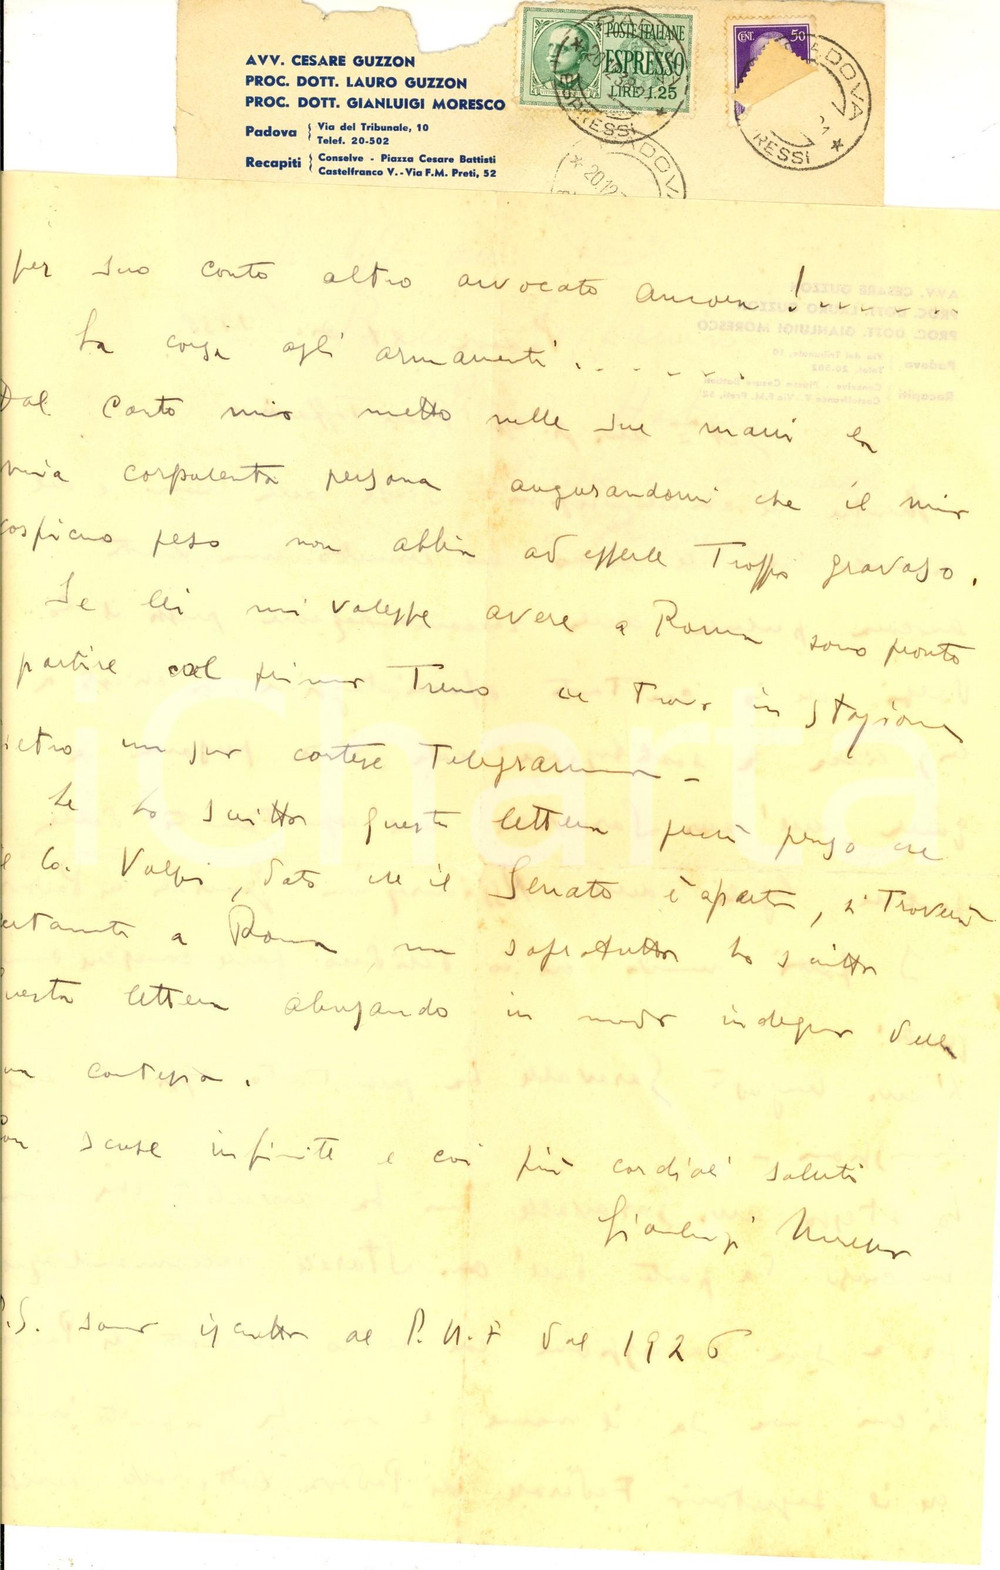 AVV. CESARE GUZZON
PROC. DOTT. LAURO GUZZON
PROC. DOTT. GIANLUIGI MORESCO
Padova { Via del Tribunale, 10
Telef. 20-502
Recapiti { Conselve - Piazza Cesare Battisti
Castelfranco V. - Via F.M. Preti, 52
POSTE ITALIANE
ESPRESSO
LIRE 1.25
CENT. 50
PADOVA
ESPRESSI
PADOVA
RESSI
ADOVA
20.12
per suo conto altro avvocato ancora !.......
La corsa agli armamenti . . . . . .
Dal canto mio metto nelle sue mani la
mia corpulenta persona augurandomi che il mio
cospicuo peso non abbia ad essere troppo gravoso.
Se Lei mi volesse avere a Roma sono pronto
partire col primo treno che trovo in stazione
dietro un suo cortese telegramma -
Le ho scritto questa lettera perchè penso che
il Co. Volpi, dato che il Senato è aperto, si troverà
a Roma ma soprattutto ho scritto
questa lettera abusando in modo indegno della
sua cortesia.
Con scuse infinite e coi più cordiali saluti
Gianluigi Moresco
P.S. sono iscritto al P.N.F dal 1926
iCharta